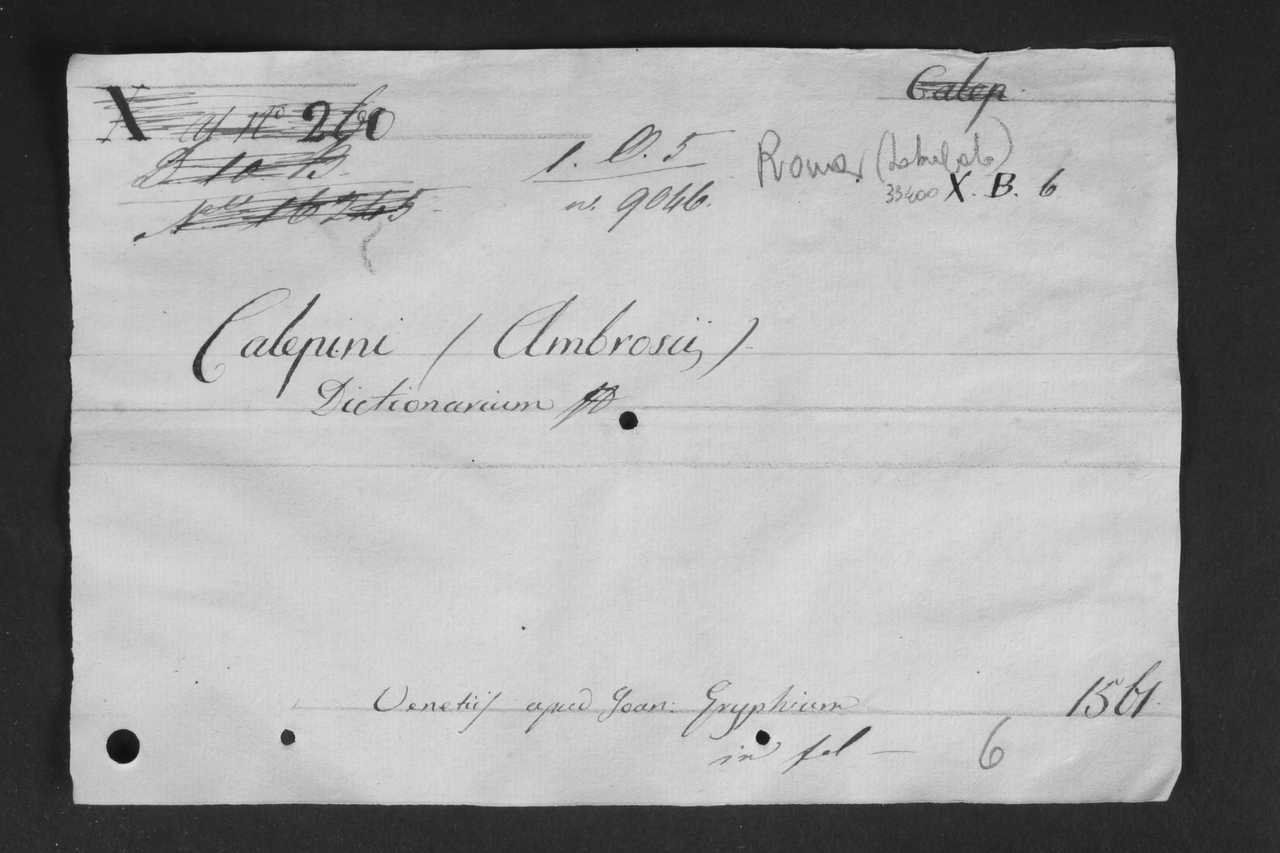 Calep
X N° 260
D 10 B.
16245
1. O. 5
n. 9046.
Roma
33400 X. B. 6
Calepini (Ambrosii)
Dictionarium
Venetiis apud Joan: Gryphium 1561.
in fol — 6